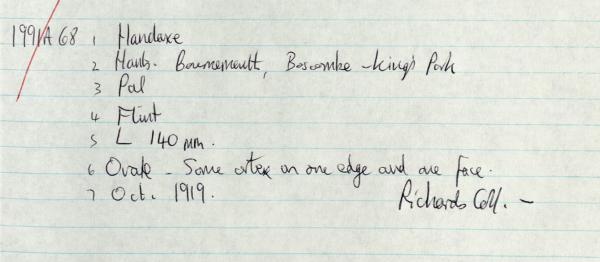 1991A 68 1 Handaxe
2 Hants. Bournemouth, Boscombe - King's Park
3 Pal
4 Flint
5 L 140 mm.
6 Ovate - Some cortex on one edge and one face.
7 Oct. 1919. Richards Coll. -